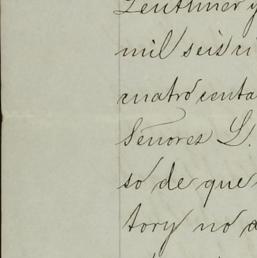 Leuthner y
mil seis ci
cuatro centa
Señores L.
so de que
tory no a